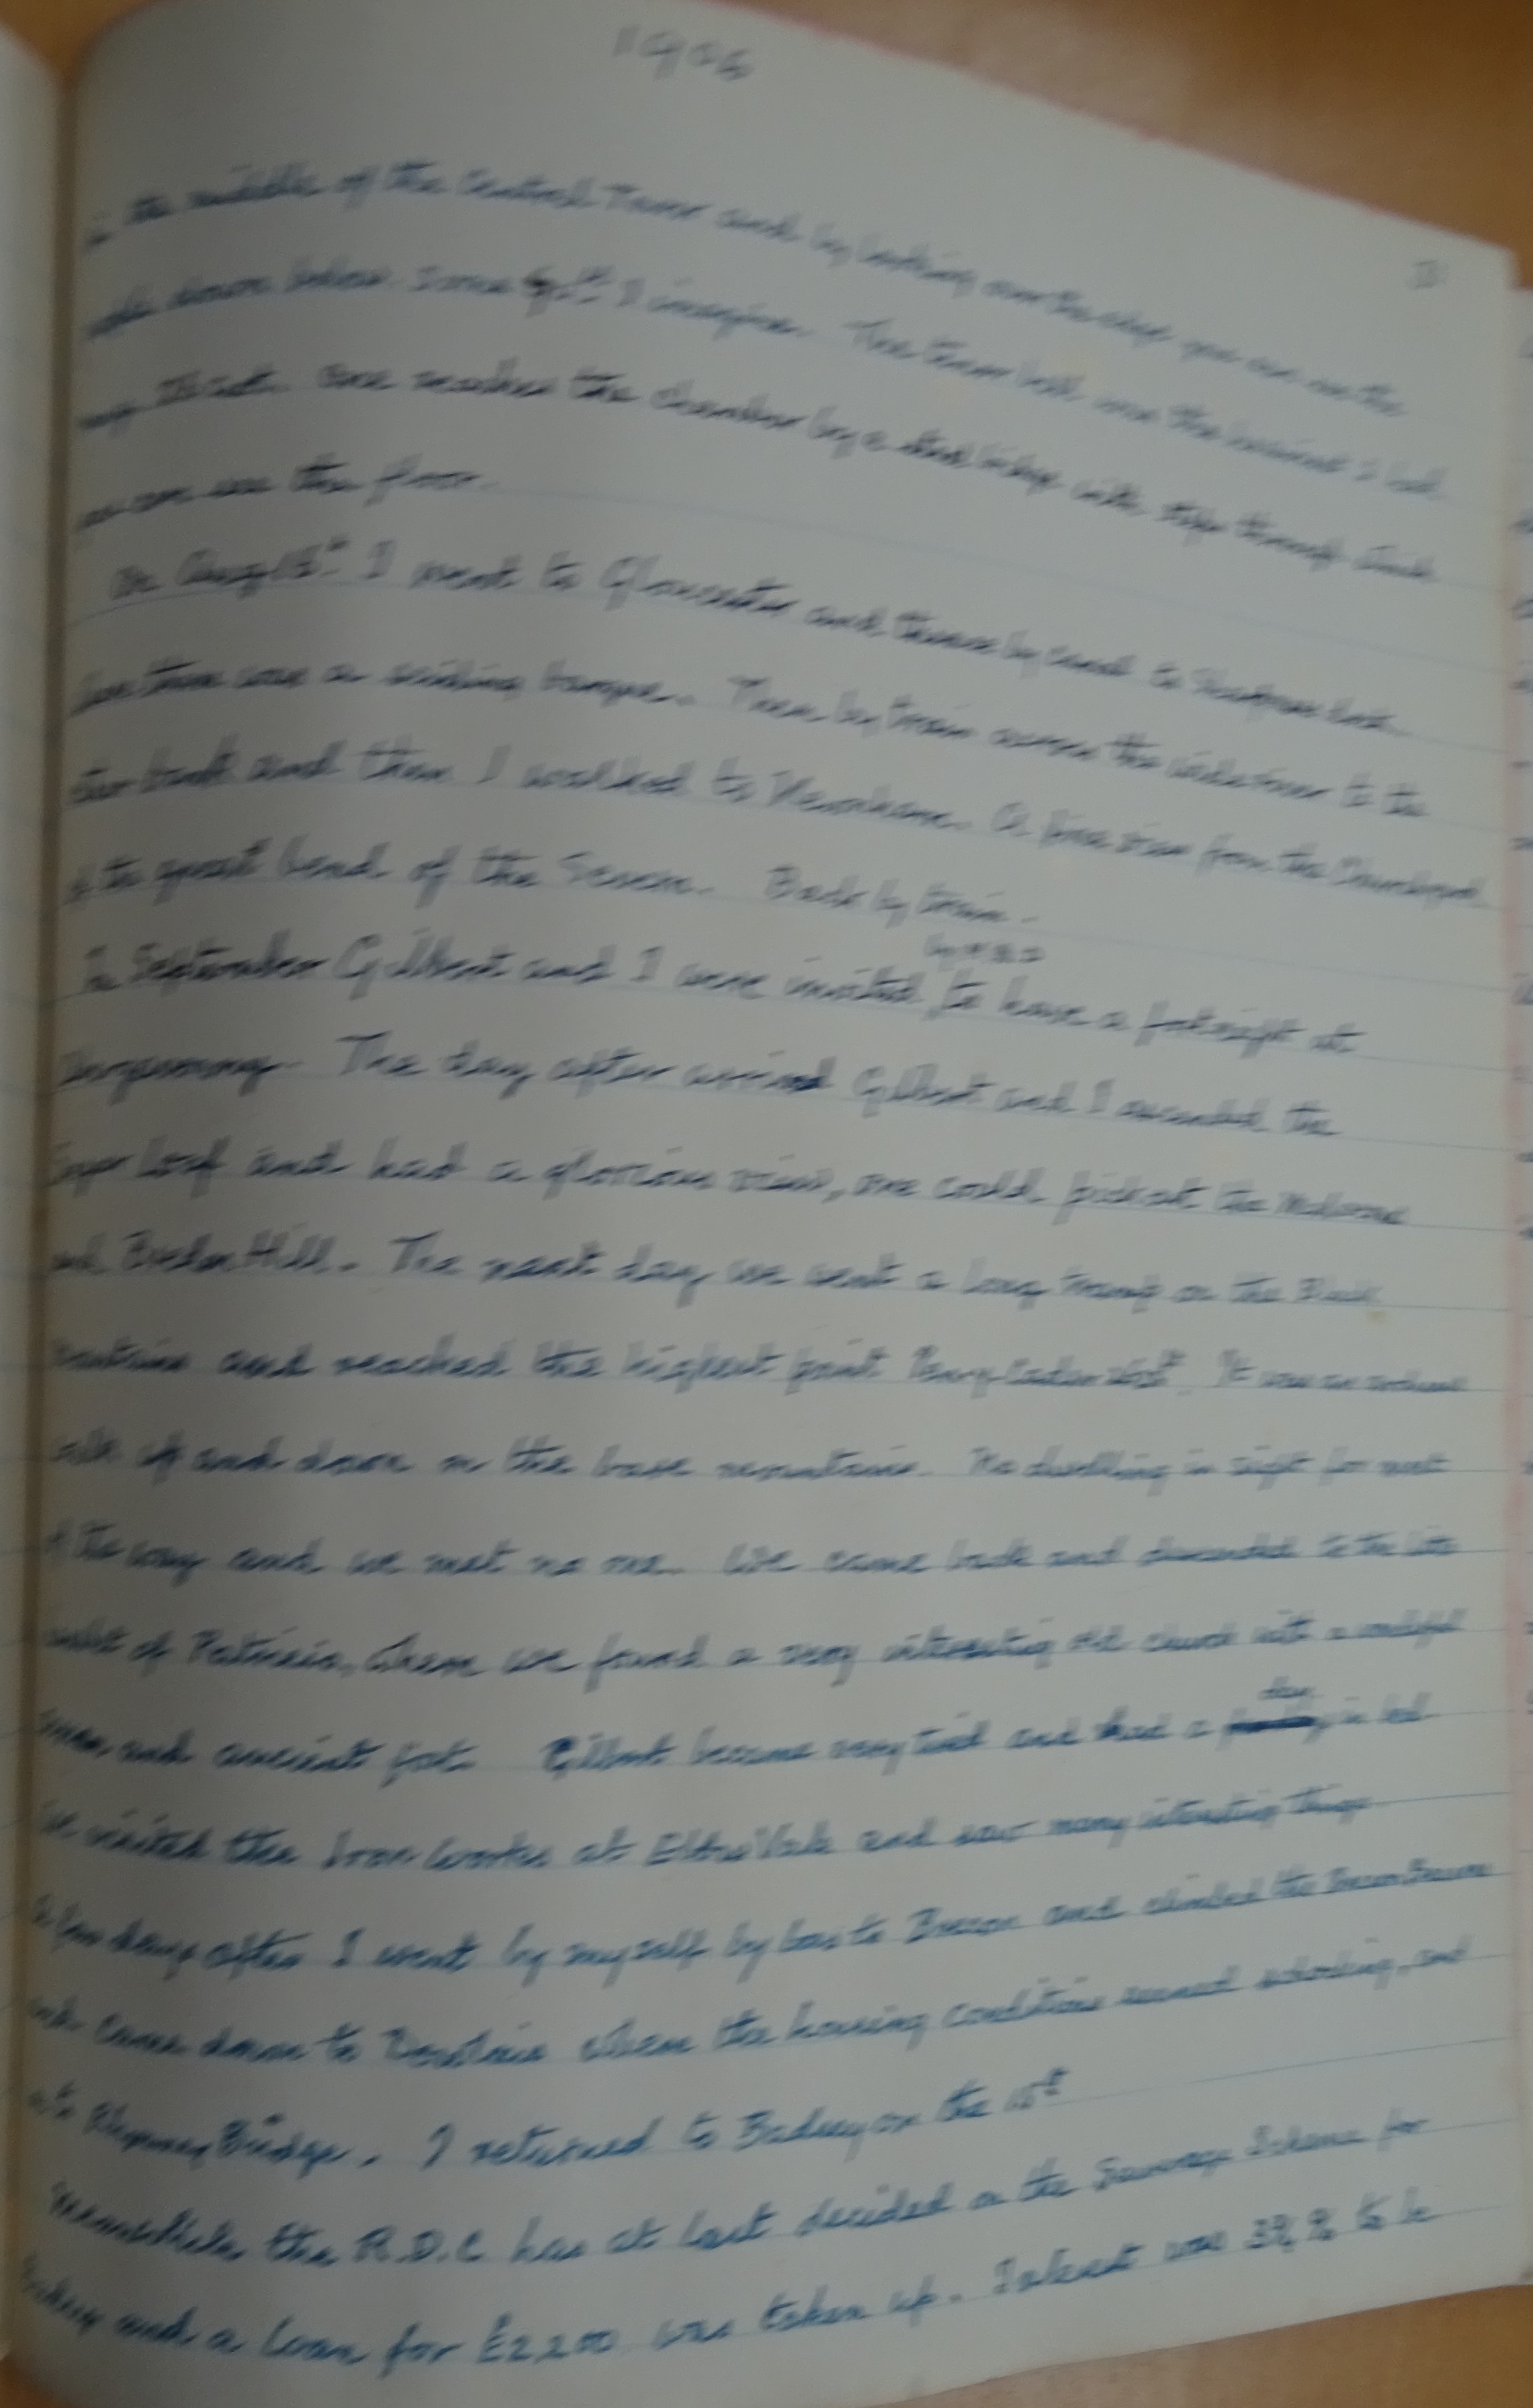 1906
in the middle of the Central Tower and by looking over the edge you can see the
down below some I imagine. The tenor bell was the heaviest I had
One reaches the chamber by a steps through which
you can see the floor.
On Aug 15th I went to Gloucester and thence by canal to Sharpness
there was a bridge. Then by train across the to the
bank and then I walked to Newnham. A fine view from the Churchyard
of the great bend of the Severn. Back by train.
In September Gilbert and I were invited to have a fortnight at
Abergavenny. The day after arrival Gilbert and I ascended the
Sugar Loaf and had a glorious view, one could pick out the Malverns
and Bredon Hill. The next day we went a long tramp on the Black
Mountains and reached the highest point It was an arduous
walk up and down on the bare mountains. No dwelling in sight for most
of the way and we met no one. We came back and descended to the little
hamlet of Patricio, where we found a very interesting old church with a wonderful
screen, and ancient font. Gilbert became very tired and had a day in bed
We visited the Iron Works at Ebbw Vale and saw many interesting things
A few days after I went by myself by bus to Brecon and climbed the Brecon Beacons
and came down to where the housing conditions seemed shocking, and
to Rhymney Bridge. I returned to Badsey on the 15th
Meanwhile the R.D.C has at last decided on the Sewerage Scheme for
Badsey and a loan for £2200 was taken up. Interest was % to be